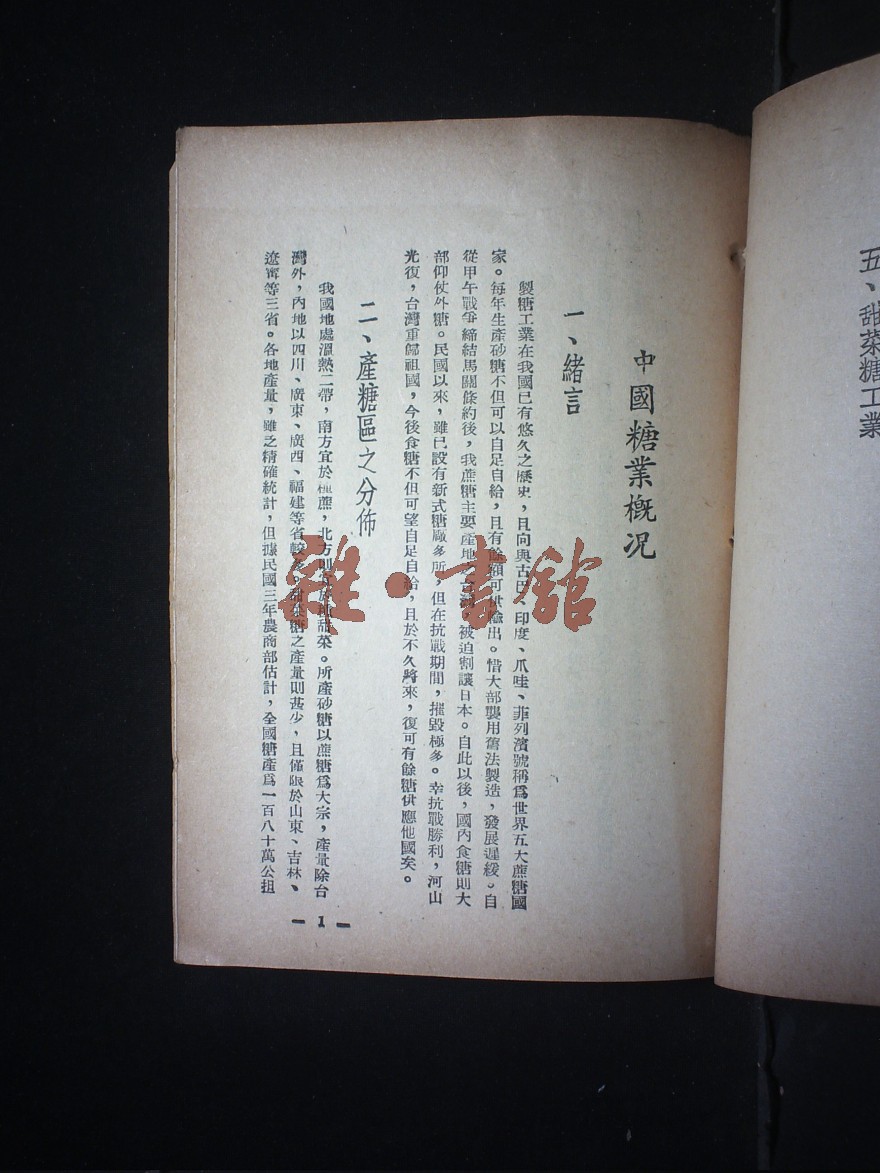 五、甜菜糖工業
中國糖業概况
一、緒言
製糖工業在我國已有悠久之歷史，且向與古巴、印度、爪哇、菲列濱號稱爲世界五大蔗糖國
家。每年生產砂糖不但可以自足自給，且有餘額可供輸出。惜大部襲用舊法製造，發展遲緩。自
從甲午戰爭締結馬關條約後，我蔗糖主要產地之台灣，被迫割讓日本。自此以後，國內食糖則大
部仰仗外糖。民國以來，雖已設有新式糖廠多所，但在抗戰期間，摧毀極多。幸抗戰勝利，河山
光復，台灣重歸祖國，今後食糖不但可望自足自給，且於不久將來，復可有餘糖供應他國矣。
二、產糖區之分佈
我國地處溫熱二帶，南方宜於種蔗，北方則宜於種甜菜。所產砂糖以蔗糖爲大宗，產量除台
灣外，內地以四川、廣東、廣西、福建等省較多，甜菜糖之產量則甚少，且僅限於山東、吉林、
遼甯等三省。各地產量，雖乏精確統計，但據民國三年農商部估計，全國糖產爲一百八十萬公担
— 1 —
雜·書館